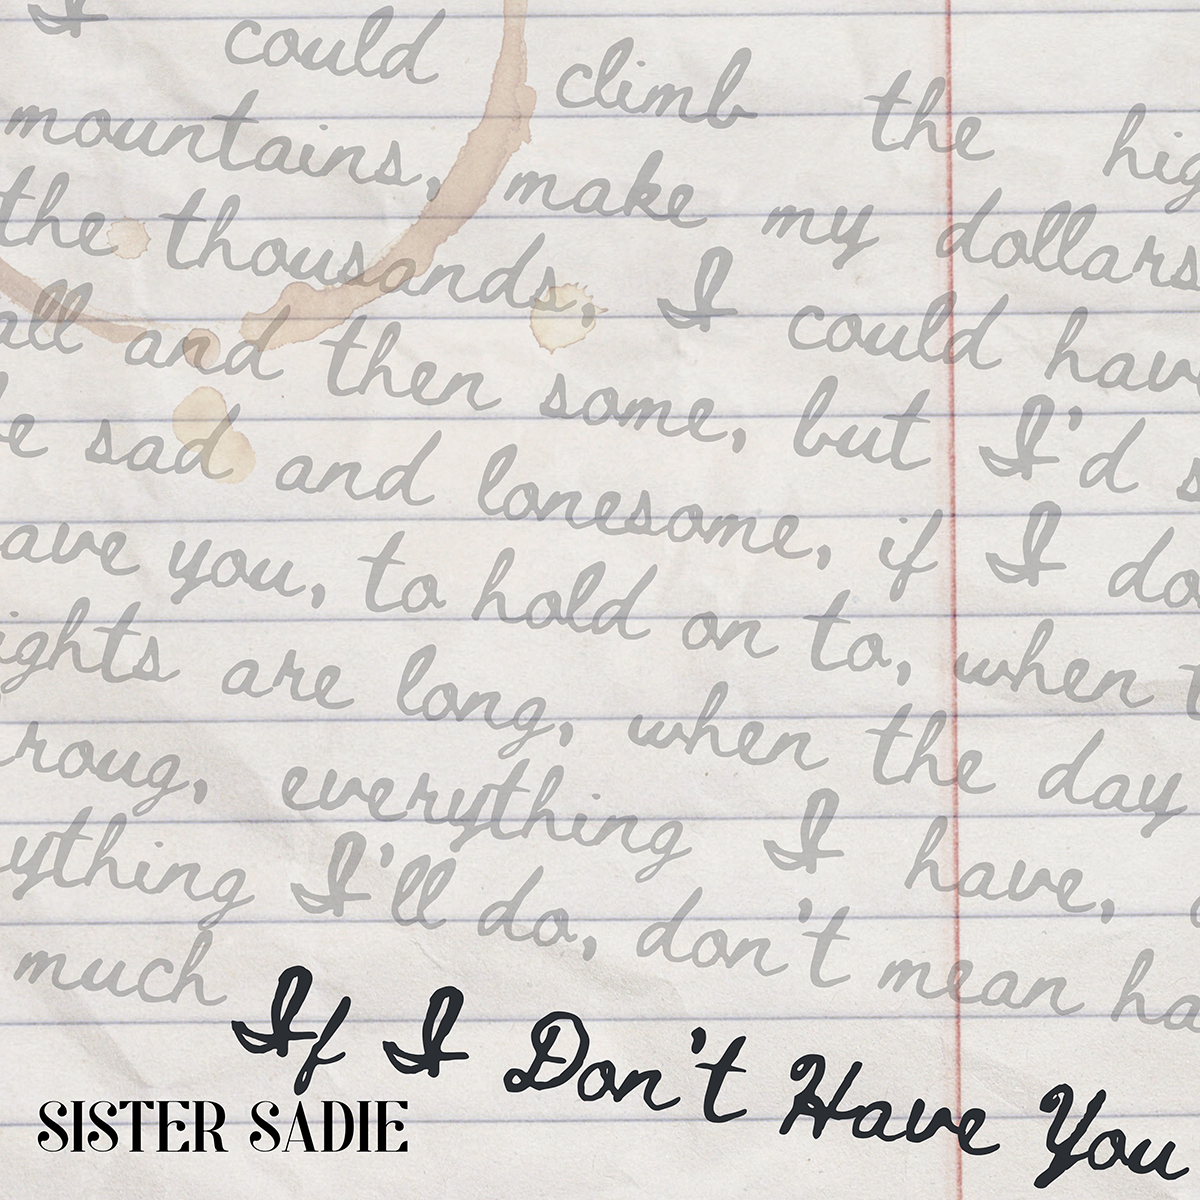 I could climb the hig
mountains, make my dollars
the thousands, I could have
all and then some, but I'd s
e sad and lonesome, if I do
ave you, to hold on to, when t
ights are long, when the day
roug, everything I have,
ything I'll do, don't mean ha
much If I Don't Have You
SISTER SADIE